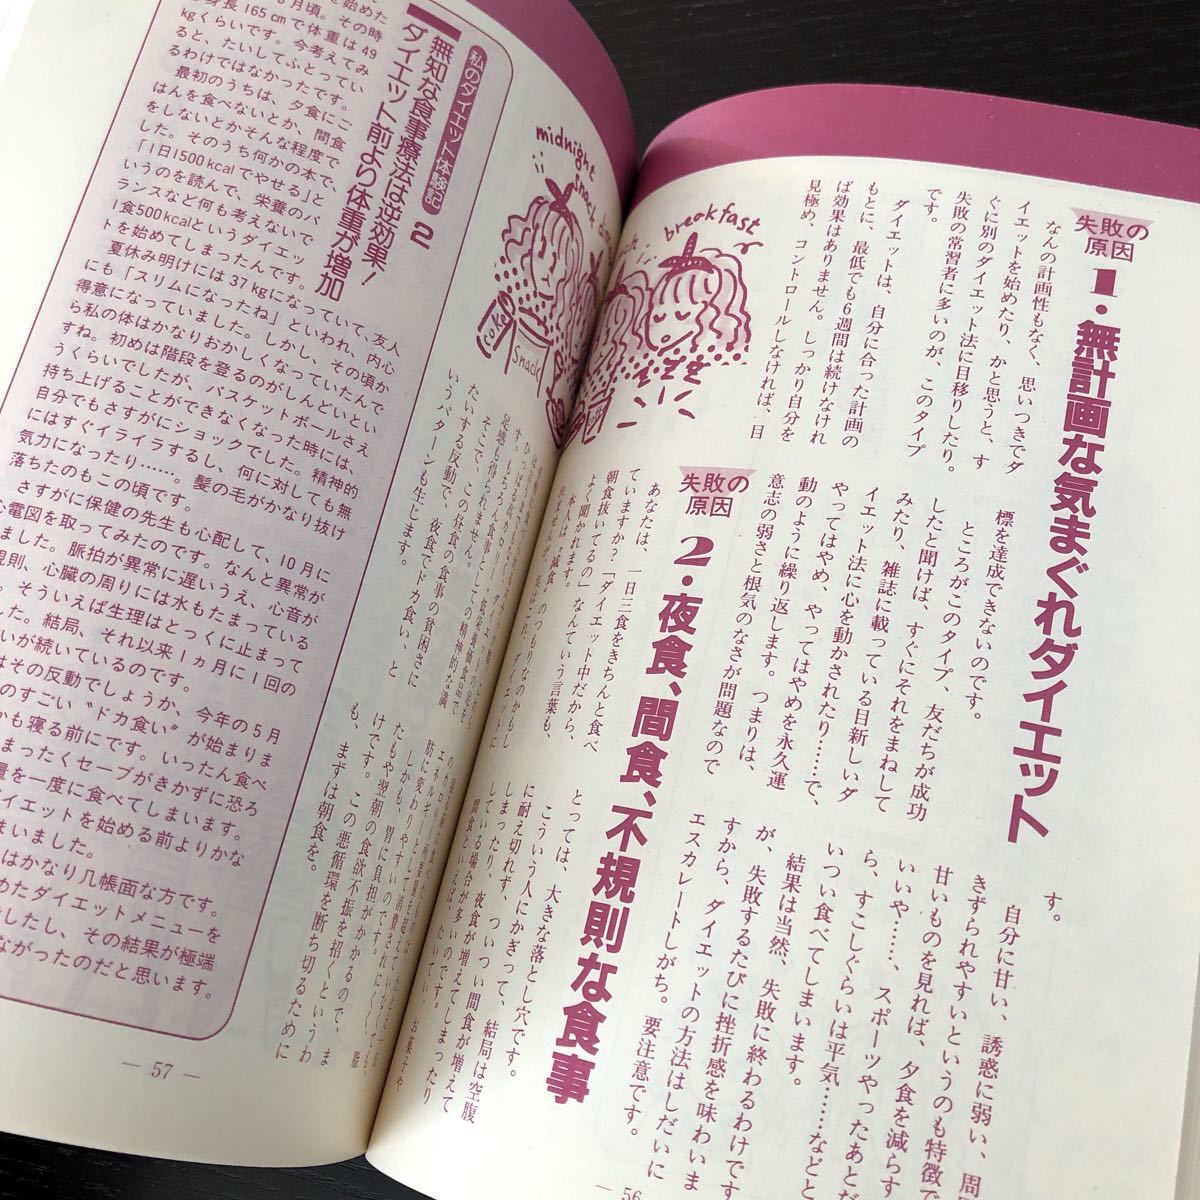 失敗の
原因
1・無計画な気まぐれダイエット
なんの計画性もなく、思いつきでダ
イエットを始めたり、かと思うと、す
ぐに別のダイエット法に目移りしたり。
失敗の常習者に多いのが、このタイプ
です。
ダイエットは、自分に合った計画の
もとに、最低でも6週間は続けなけれ
ば効果はありません。しっかり自分を
見極め、コントロールしなければ、目
標を達成できないのです。
ところがこのタイプ、友だちが成功
したと聞けば、すぐにそれをまねして
みたり、雑誌に載っている目新しいダ
イエット法に心を動かされたり……で、
やってはやめ、やってはやめを永久運
動のように繰り返します。つまりは、
意志の弱さと根気のなさが問題なので
す。
自分に甘い、誘惑に弱い、周
きずられやすいというのも特徴で
甘いものを見れば、夕食を減らす
いいや……、スポーツやったあとだ
ら、すこしぐらいは平気……などと
いつい食べてしまいます。
結果は当然、失敗に終わるわけです
が、失敗するたびに挫折感を味わいま
すから、ダイエットの方法はしだいに
エスカレートしがち。要注意です。
breakfast
失敗の
原因
2・夜食、間食、不規則な食事
あなたは、一日三食をきちんと食べ
ていますか?「ダイエット中だから、
朝食抜いてるの」なんていう言葉も、
よく聞かれます。
とっては、大きな落とし穴です。
こういう人にかぎって、結局は空腹
に耐え切れず、ついつい間食が増えて
しまったり、夜食が増えてしまったり
しているる場合が多いのです。
間食といえば、たいてい、お菓子や、
— 56
midnight
snack
coke
Snack
足感も得られません。
そこで、この昼食の食事の貧困さに
たいする反動で、夜食でドカ食い、と
いうパターンも生じます。
しかも、胃に負担がかかるので、ま
たもや翌朝の食欲不振を招くというわ
けです。この悪循環を断ち切るために
も、まずは朝食を。
私のダイエット体験記
2
無知な食事療法は逆効果!
ダイエット前より体重が増加
を始めた
月頃。その時
身長165cmで体重は49
kgくらいです。今考えてみ
ると、たいしてふとってい
るわけではなかったです。
最初のうちは、夕食にご
はんを食べないとか、間食
をしないとかそんな程度で
した。そのうち何かの本で、
「1日1500kcalでやせる」と
いうのを読んで、栄養のバ
ランスなど何も考えないで
1食500kcalというダイエッ
トを始めてしまったんです。
夏休み明けには37kgになっていて、友人
にも「スリムになったね」といわれ、内心
得意になっていました。しかし、その頃か
ら私の体はかなりおかしくなっていたんで
すね。初めは階段を登るのがしんどいとい
うくらいでしたが、バスケットボールさえ
持ち上げることができなくなった時には、
自分でもさすがにショックでした。精神的
にはすぐイライラするし、何に対しても無
気力になったり……。髪の毛がかなり抜け
落ちたのもこの頃です。
さすがに保健の先生も心配して、10月に
心電図を取ってみたのです。なんと異常が
ました。脈拍が異常に遅いうえ、心音が
規則、心臓の周りには水もたまっている
。そういえば生理はとっくに止まって
した。結局、それ以来1ヵ月に1回の
いが続いているのです。
はその反動でしょうか、今年の5月
のすごい“ドカ食い”が始まりま
かも寝る前にです。いったん食べ
まったくセーブがきかずに恐ろ
量を一度に食べてしまいます。
イエットを始める前よりかな
まいました。
はかなり几帳面な方です。
めたダイエットメニューを
したし、その結果が極端
ながったのだと思います。
— 57 —